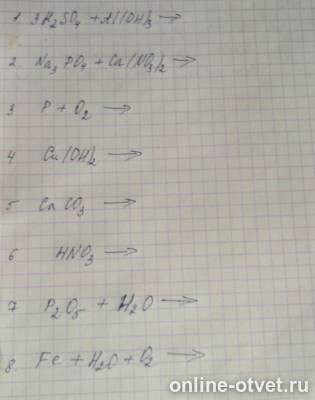 1 3H₂SO₄ + Al(OH)₃ →
2 Na₃PO₄ + Ca(NO₃)₂ →
3 P + O₂ →
4 Cu(OH)₂ →
5 CaCO₃ →
6 HNO₃ →
7 P₂O₅ + H₂O →
8. Fe + H₂O + O₂ →
online-otvet.ru